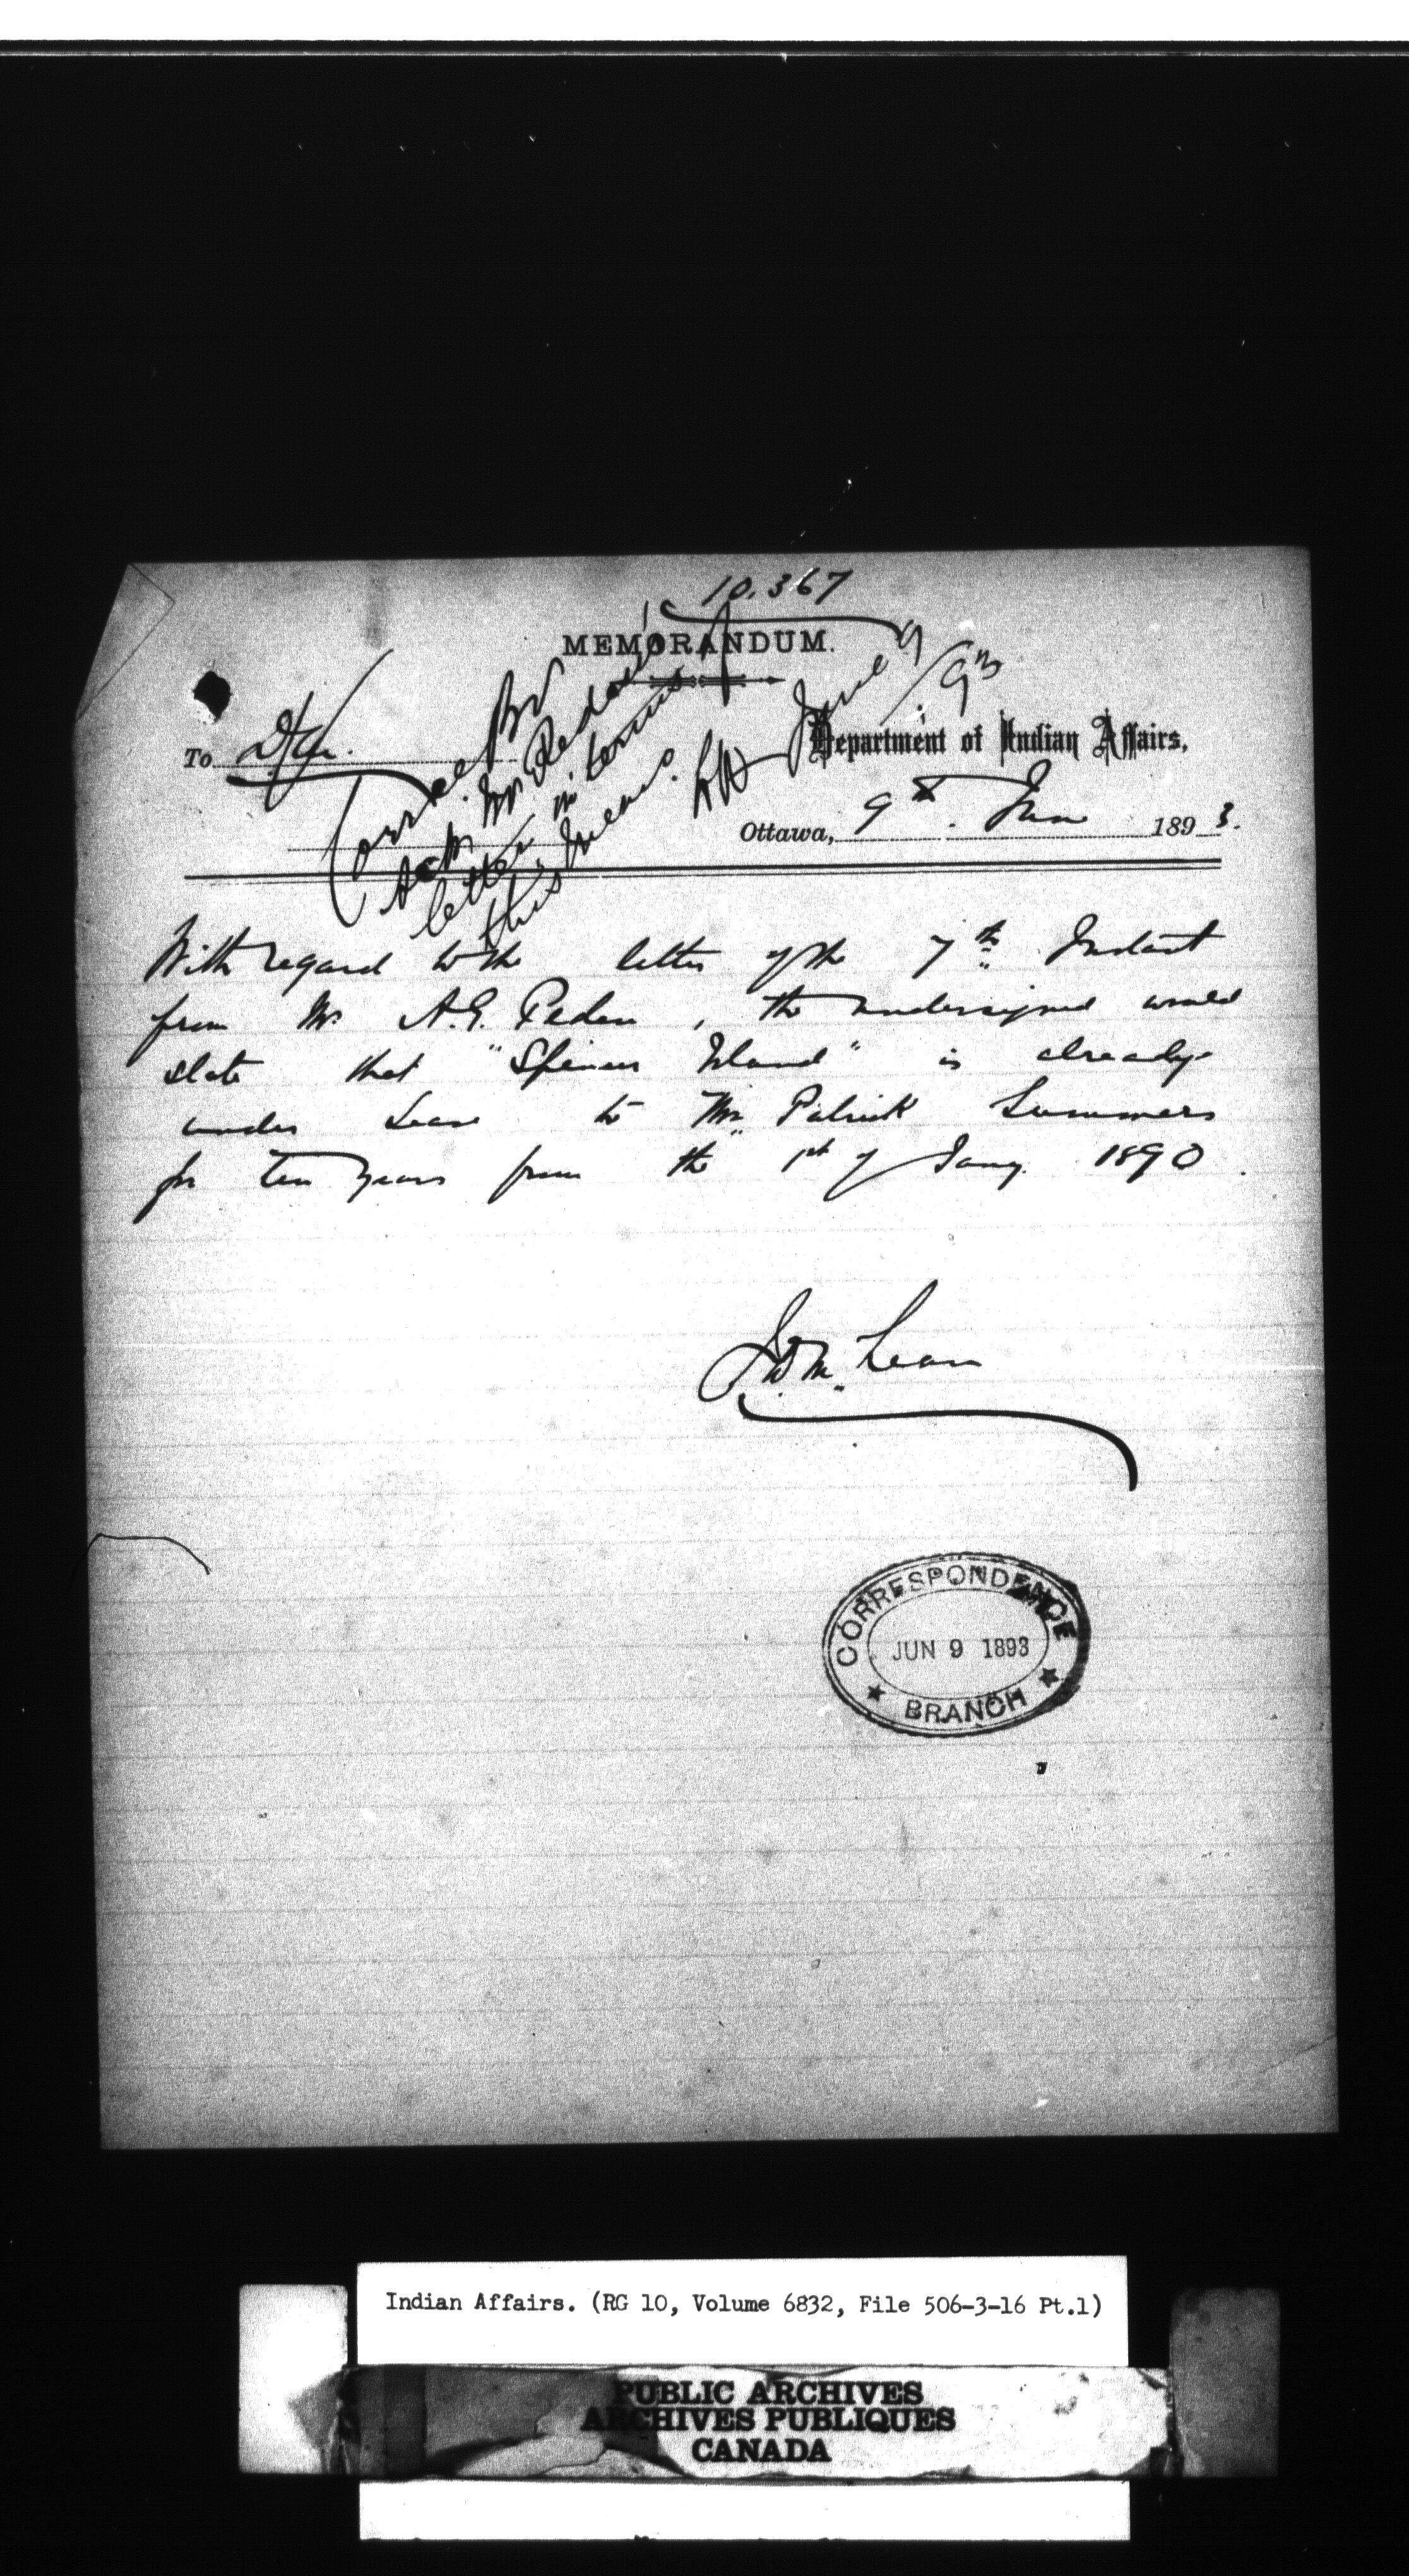 10,367
MEMORANDUM.
To
Department of Indian Affairs,
Ottawa, 9th June 1893.
Corrce Br
Ack Mr Pedens
letter in terms
this means.
June 9/93
With regard to the letter of the 7th Instant
from Mr. A.G. Peden, the undersigned would
state that "Spencer Island" is already
under Lease to Mr. Patrick Summers
for ten years from the 1st of Jany. 1890.
J.D. McLean
CORRESPONDENCE
JUN 9 1893
BRANCH
Indian Affairs. (RG 10, Volume 6832, File 506-3-16 Pt.1)
PUBLIC ARCHIVES
ARCHIVES PUBLIQUES
CANADA